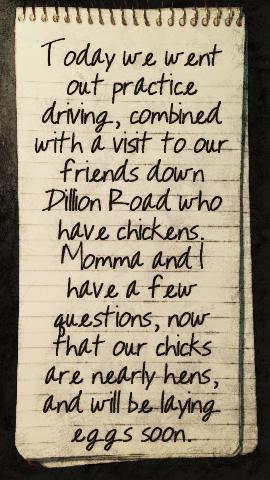 Today we went
out practice
driving, combined
with a visit to our
friends down
Dillion Road who
have chickens.
Momma and I
have a few
questions, now
that our chicks
are nearly hens,
and will be laying
eggs soon.